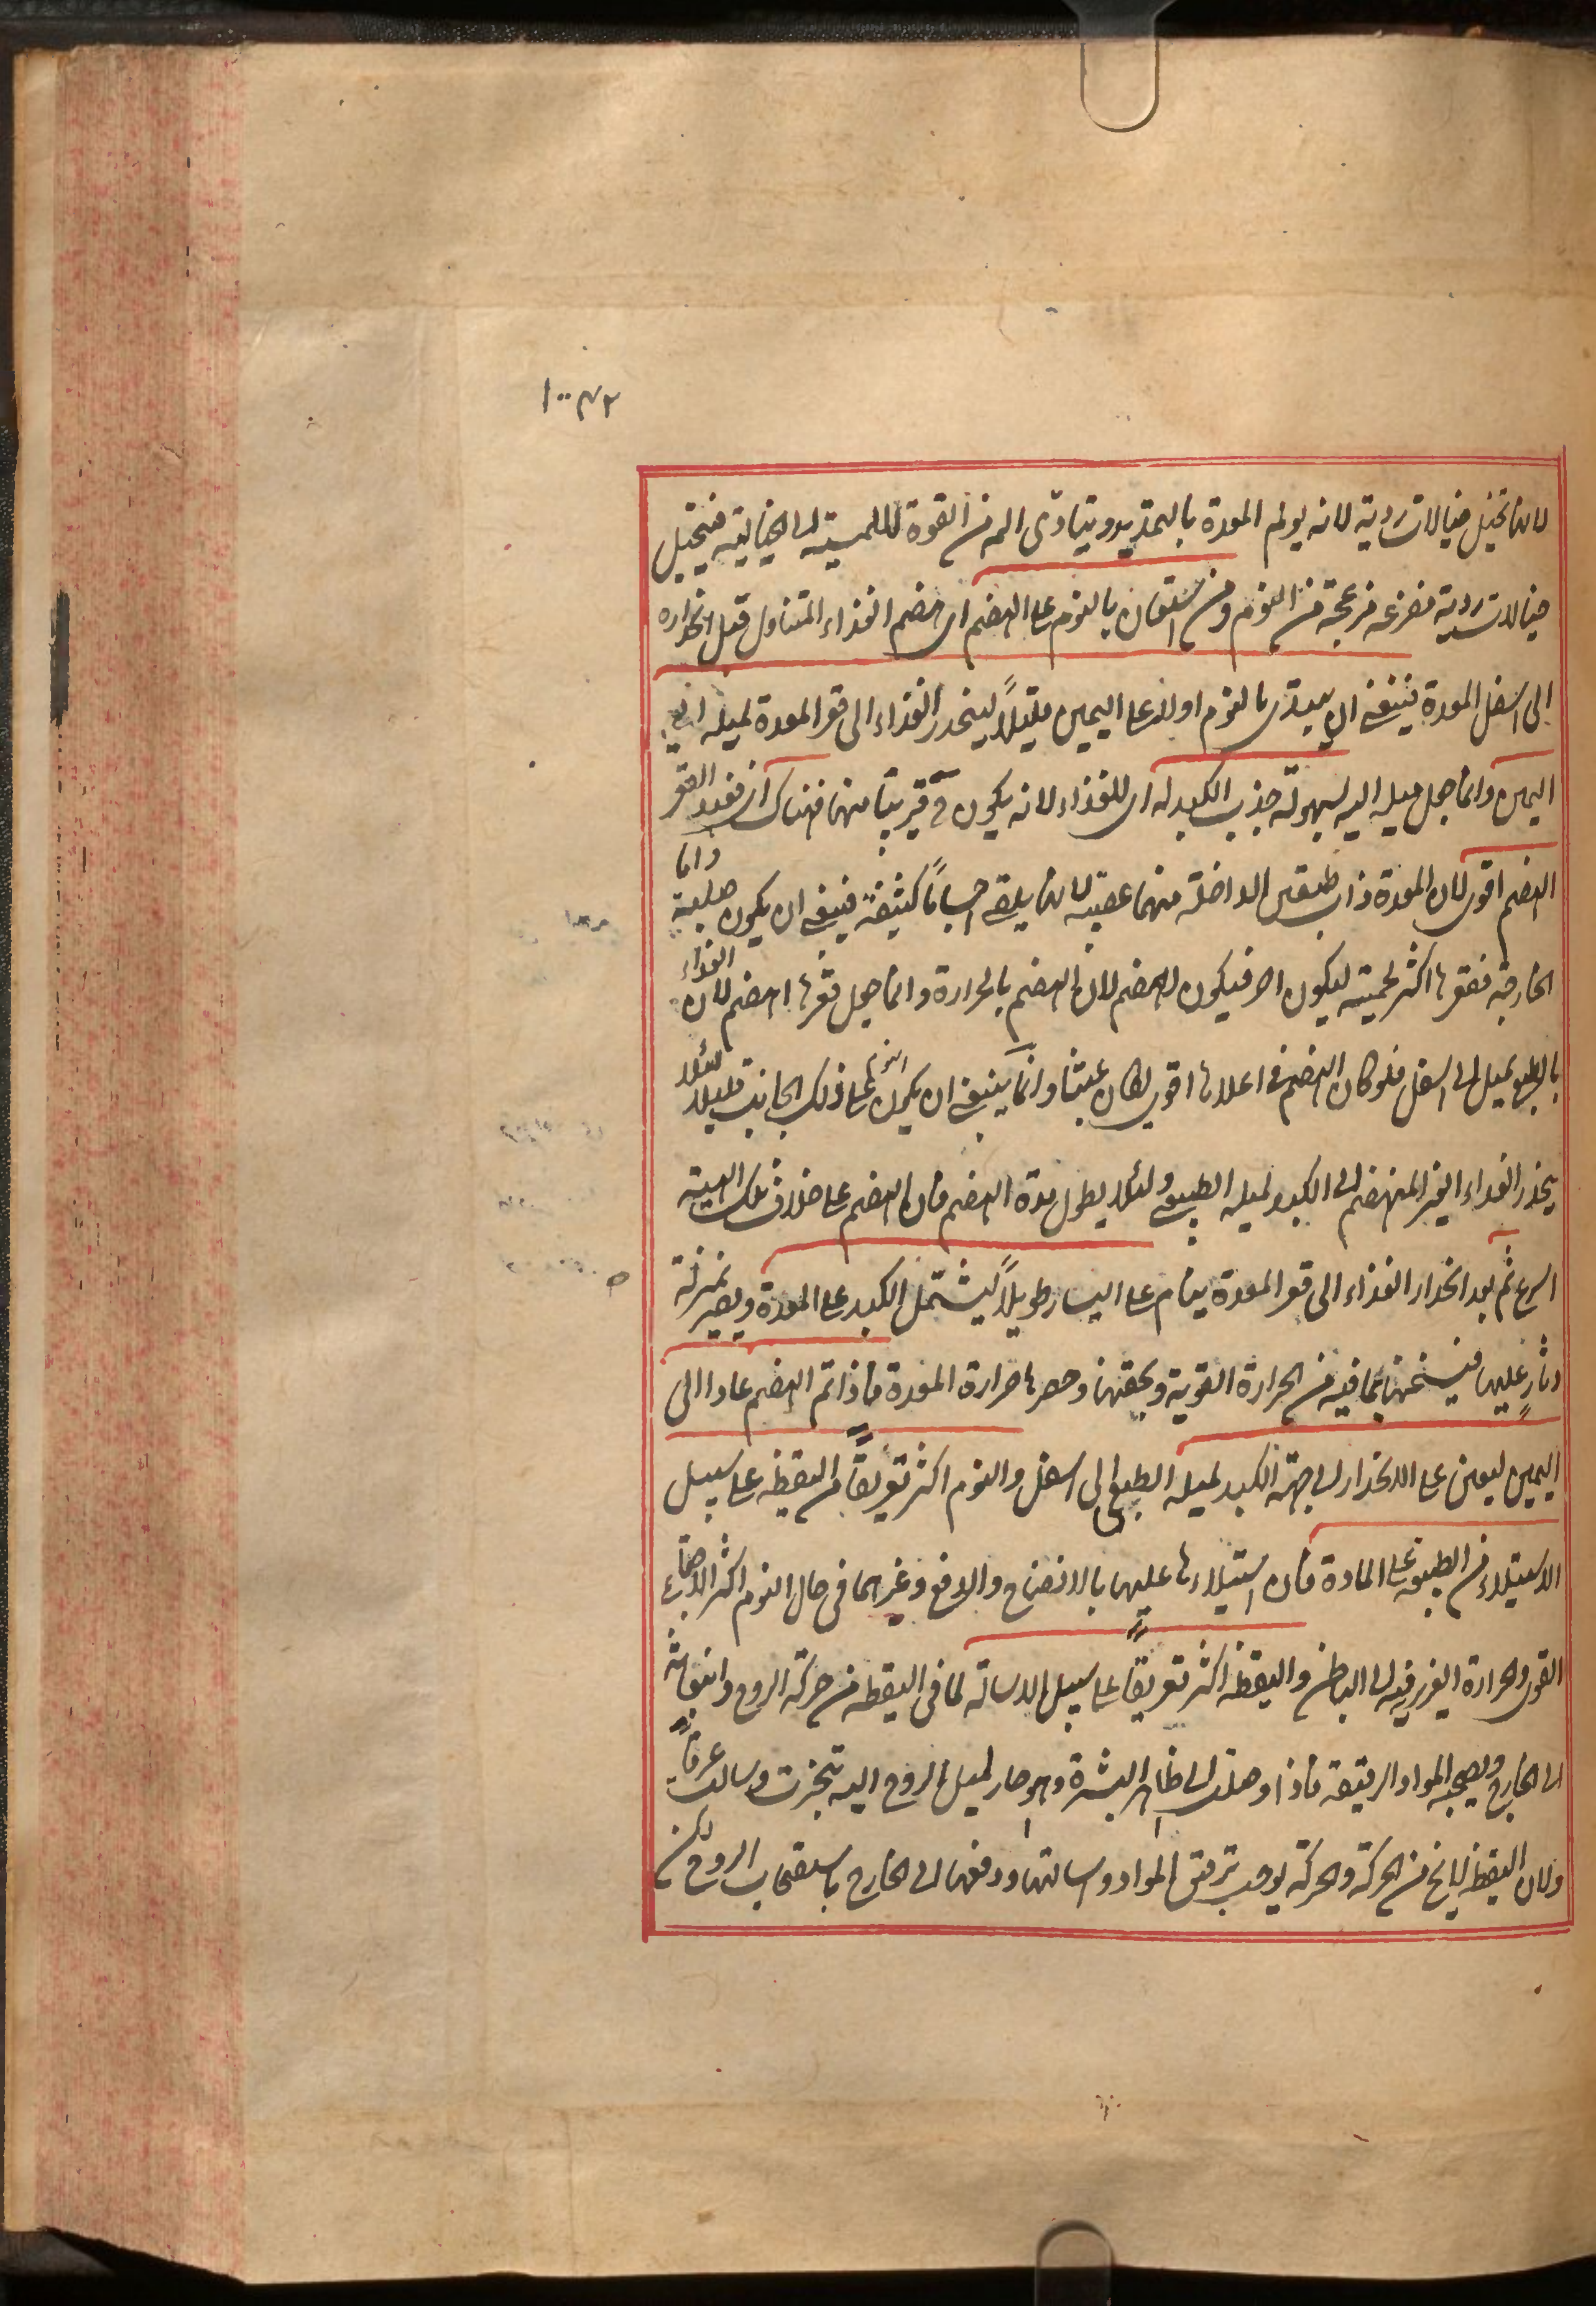 ١٠٠٤٢
لانها تخيل خيالات ردية لانه يولم المعدة بالتمديد ويتادى الم من القوة اللامسة الى الخيالية فيتخيل
خيالات ردية مفزعة مزعجة من النوم ومن استعان بالنوم على الهضم اى هضم الغذاء المتناول قبل انحداره
الى اسفل المعدة فينبغى ان يبتدى بالنوم اولا على اليمين قليلاً لينحدر الغذاء الى قعر المعدة لميله الى
اليمين وانما جعل ميله اليه لسهولة جذب الكبد له اى للغذاء لانه يكون ح قريبا منها فهناك اى فى القعر
الهضم اقوى لان المعدة ذات طبقتين الداخلة منهما عصبية لانها يلقى اجساماً كثيفة فينبغى ان يكون صلبة واما
الخارجة فقعرها اكثر لحمية ليكون احر فيكون اهضم لان الهضم بالحرارة وانما جعل قعرها اهضم لان الغذاء
بالطبع يميل الى اسفل فلو كان الهضم فى اعلاها اقوى لكان عبثا وانما ينبغى ان يكون النوم على ذلك الجانب قليلا لئلا
ينحدر الغذاء الغير المنهضم الى الكبد لميله الطبيعى ولئلا يطول مدة الهضم فان الهضم على خلاف تلك الهيئة
اسرع ثم بعد انحدار الغذاء الى قعر المعدة ينام على اليسار طويلاً ليشتمل الكبد على المعدة ويصير بمنزلة
دثارٍ عليها فيسخنها بما فيه من الحرارة القوية ويحقنها وحصرها حرارة المعدة فاذا تم الهضم عاد الى
اليمين ليعين على الانحدار الى جهة الكبد لميله الطبيعى الى اسفل والنوم اكثر تعريقاً من اليقظة على سبيل
الاستيلاء من الطبيعة على المادة فان استيلاءها عليها بالانضاج والدفع وغيرهما فى حال النوم اكثر لاجتماع
القوى والحرارة الغريزية الى الباطن واليقظة اكثر تعريقاً على سبيل الاسالة لما فى اليقظة من حركة الروح وانبعاثه
الى الخارج ويصحبه المواد الرقيقة فاذا وصلت الى ظاهر البشرة وهو حار لميل الروح اليه تبخرت وسالت عرقاً
ولان اليقظة لا يخ من الحركة والحركة يوجب ترقيق المواد واسالتها ودفعها الى الخارج باستصحاب الروح لكن